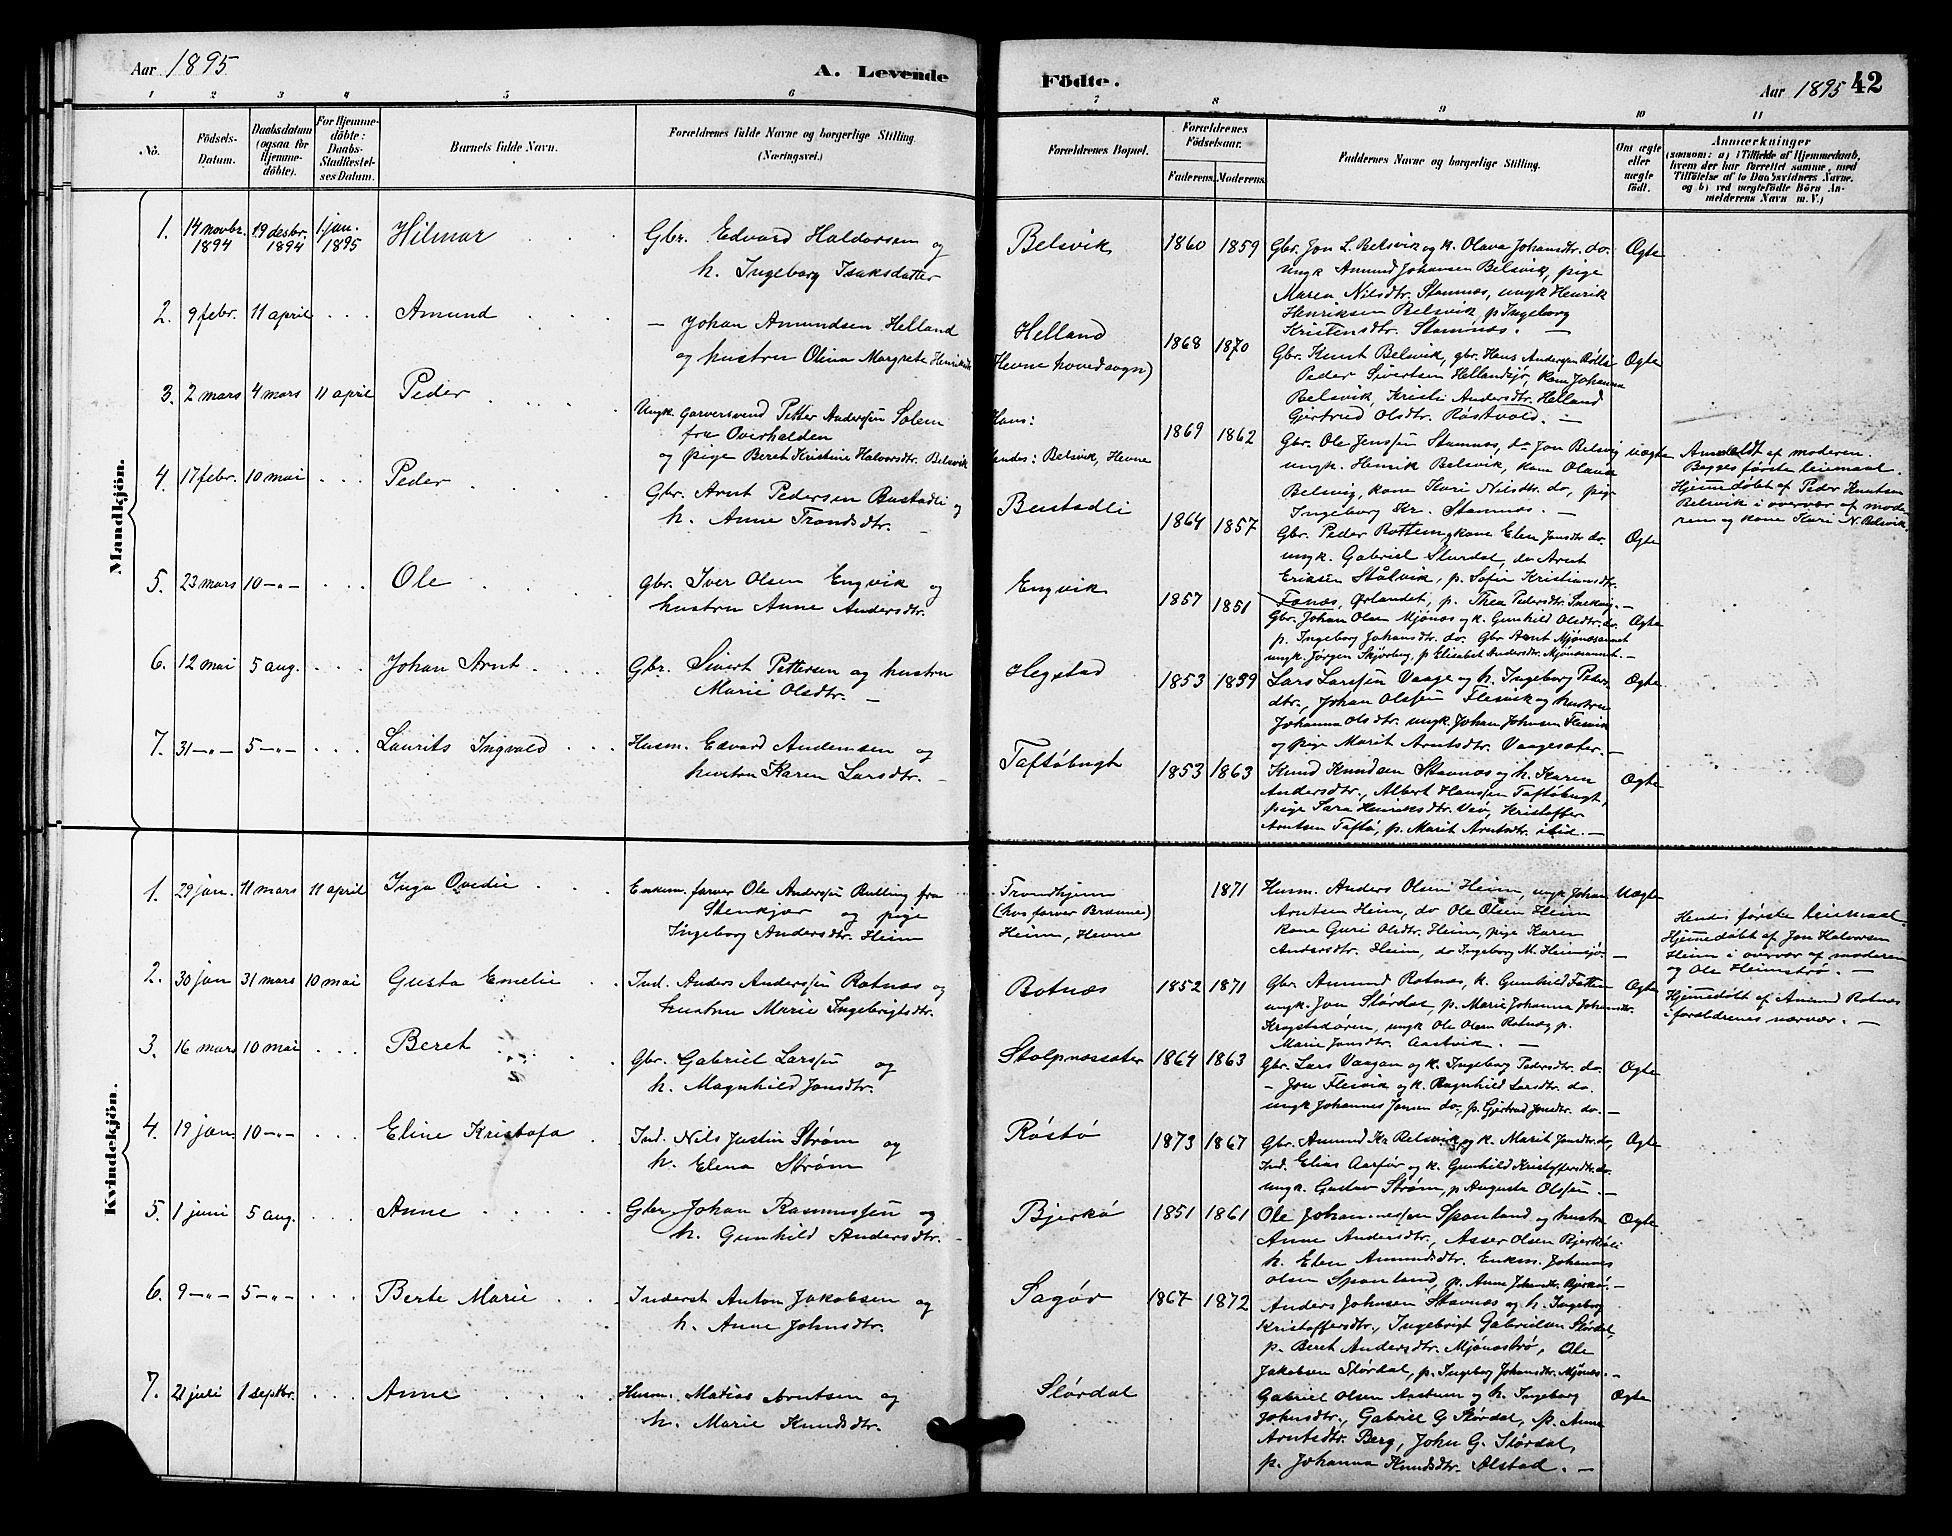 Aar 1895
A. Levende
Födte.
Aar 1895 42
1 2 3 4 5 6 7 8 9 10 11
No.
Födsels-
Datum.
Daabsdatum
(ogsaa for
Hjemme-
döbte).
For Hjemme-
döbte:
Daabs-
Stadfestel-
ses Datum.
Barnets fulde Navn.
Forældrenes fulde Navne og borgerlige Stilling.
(Næringsvei.)
Forældrenes Bopæl.
Forældrenes
Födselsaar.
Faderens. Moderens.
Faddernes Navne og borgerlige Stilling.
Om ægte
eller
uægte
födt.
Anmærkninger
(saasom: a) i Tilfælde af Hjemmedaab,
hvem der har forrettet samme, med
Tilföielse af to Daabsvidners Navne.
og b) ved uægtefödte Börn An-
melderens Navn m. V.)
Mandkjön.
1. 14 novbr. 1894 19 desbr. 1894 1 jan. 1895 Hilmar
Gbr. Edvard Haldorsen og
h. Ingeborg Isaksdatter
Belsvik 1860 1859
Gbr. Jon L. Belsvik og k. Olava Johansdtr. do.
ungk Amund Johansen Belsvik, pige
Maren Nilsdtr. Stamnes, ungk Henrik
Henriksen Belsvik, p Ingeborg
Kristensdtr. Stamnæs. —
Ægte
2. 9 febr. 11 april Amund
— Johan Amundsen Helland
og hustru Olina Margrete Henriksdtr
Helland
(Hevne hovedsogn)
1868 1870
Gbr. Knut Belsvik, gbr. Hans Andersen
Peder Sivertsen Hellandsjø, kone Johanna
Belsvik, Kristi Andersdtr. Helland
Gjertrud Olsdtr. Røstvold. —
Ægte
3. 2 mars 4 mars 11 april Peder
Ungk. garversvend Petter Andersen Solem
fra Overhalden
og pige Beret Kristine Halvorsdtr. Belsvik
Hans:
Hendes: Belsvik, Hevne
1869 1862
Gbr. Ole Jenssen Stamnæs, do Jon Belsvig
ungk. Henrik Belsvik, kone Olava
Belsvig, kone Kari Nilsdtr. do, pige
Ingeborg Kr. Stamnæs. —
uægte
Anmeldt af moderen.
Begges første leiemaal.
Hjemmedøbt af Peder Knutsen
Belsvik i overvær af mode-
ren og kone Kari N. Belsvik.
4. 17 febr. 10 mai Peder
Gbr. Arnt Pedersen Bustadli og
h. Anne Trondsdtr. —
Bustadli 1864 1857
Gbr. Peder Rottem og kone Elen Jonsdtr do.
ungk. Gabriel Slørdal, do Arnt
Eriksen Stålvik, p. Sofie Kristiansdtr.
Fonæs, Ørlandet, p. Thea Pedersdtr. —
Ægte
5. 23 mars 10 —"— Ole
Gbr. Iver Olsen Engvik og
hustru Anne Andersdtr.
Engvik 1857 1851
Gbr. Johan Olsen Mjönæs og k. Gunhild Olsdtr. do.
p. Ingeborg Johansdtr. do. Gbr Arnt Mjönæsaunet
ungk. Jørgen Skjærberg, p Elisabet Andersdtr. Mjönæsaunet. —
Ægte
6. 12 mai 5 aug. Johan Arnt
Gbr. Sivert Pettersen og hustru
Marie Olsdtr. —
Hegstad 1853 1859
Lars Larssen Vaage og h. Ingeborg Peders-
dtr., Johan Olssen Flesvik og hustru
Johanna Olsdtr. ungk. Johan Johnsen Flesvik
og pige Marit Arntsdtr. Vaagesæter. —
Ægte
7. 31 —"— 5 —"— Laurits Ingvald
Husm. Edvard Andersen og
hustru Karen Larsdtr. —
Taftøbugt 1853 1863
Knud Knudsen Stavnæs og h. Karen
Andersdtr., Albert Hanssen Taftøbugt,
pige Sara Henriksdtr. Vaø, Kristoffer
Arntsen Taftø, p. Marit Arntsdtr. ibid. —
Ægte
Kvindekjön.
1. 29 jan. 11 mars 11 april Inga Ovedie
Enkem. farver Ole Andersen Bulling fra
Stenkjær og pige
Ingeborg Andersdtr. Heim
Trondhjem
(hos farver Brænne)
Heim, Hevne
1871
Husm. Anders Olsen Heim, ungk Johan
Arntsen Heim, do Ole Olsen Heim
kone Guri Olsdtr. Heim, pige Karen
Andersdtr. Heim, do Ingeborg M. Heimsjø. —
Uægte
Hendes første leiemaal.
Hjemmedøbt af Jon Halvorsen
Heim i overvær af moderen
og Ole Heimstrø. —
2. 30 jan 31 mars 10 mai Gusta Emelie
Ind. Anders Anderssen Rotnæs og
hustru Marie Ingebrigtsdtr.
Rotnæs 1852 1871
Gbr. Amund Rotnæs, k. Gunhild
ungk. Jon Slørdal, p. Marie Johanna Johansdtr.
Krogstadøren, ungk Ole Olsen Rotnæs p.
Marie Jonsdtr. Aastvik. —
Ægte
Hjemmedøbt af Amund Rotnæs
i forældrenes nærvær. —
3. 16 mars 10 mai Beret
Gbr. Gabriel Larssen og
h. Magnhild Jonsdtr.
Stolpnæssæter 1864 1863
Gbr. Lars Vaagan og k. Ingeborg Pedersdtr. do.
— Jon Flesvik og k. Ragnhild Larsdtr. do.
ungk Johannes Jonsen do, p. Gjertrud Jonsdtr. do. —
Ægte
4. 19 jan. 10 —"— Eline Kristofa
Ind. Nils Justin Strøm og
h. Elena Strøm
Røstø 1873 1867
Gbr. Amund Kr. Belsvik og k. Marit Jonsdtr. do,
Ind. Elias Aarför og k. Gunhild Kristoffersdtr. do.
ungk. Gustav Strøm, p Augusta Olssen. —
Ægte
5. 1 juni 5 aug. Anne
Gbr. Johan Rasmussen og
h. Gunhild Andersdtr. —
Bjerkø 1851 1861
Ole Johannessen Spanland og hustru
Anne Andersdtr., Asser Olsen Bjerkøli
h. Elen Amundsdtr. Enkm. Johannes
Olsen Spanland, p. Anne Johansdtr. Bjerkø. —
Ægte
6. 9 —"— 5 —"— Berte Marie
Inderst Anton Jakobsen og
h. Anne Johnsdtr.
Sagør 1867 1872
Anders Johnsen Stavnæs og h. Ingeborg
Kristoffersdtr., Ingebrigt Gabrielsen Slørdal,
p. Beret Andersdtr. Mjönæstrø, Ole
Jakobsen Slørdal, p. Ingeborg Johansdtr. Mjönæs. —
7. 21 juli 1 septbr. Anne
Husm. Matias Arntsen og
h. Marie Knudsdtr.
Slørdal
Gabriel Olsen Aastum og h. Ingeborg
Johnsdtr., Gabriel G Slørdal, p. Anne
Arntsdtr. Berg, John G. Slørdal,
p. Johanna Knudsdtr. Alstad. —
Ægte